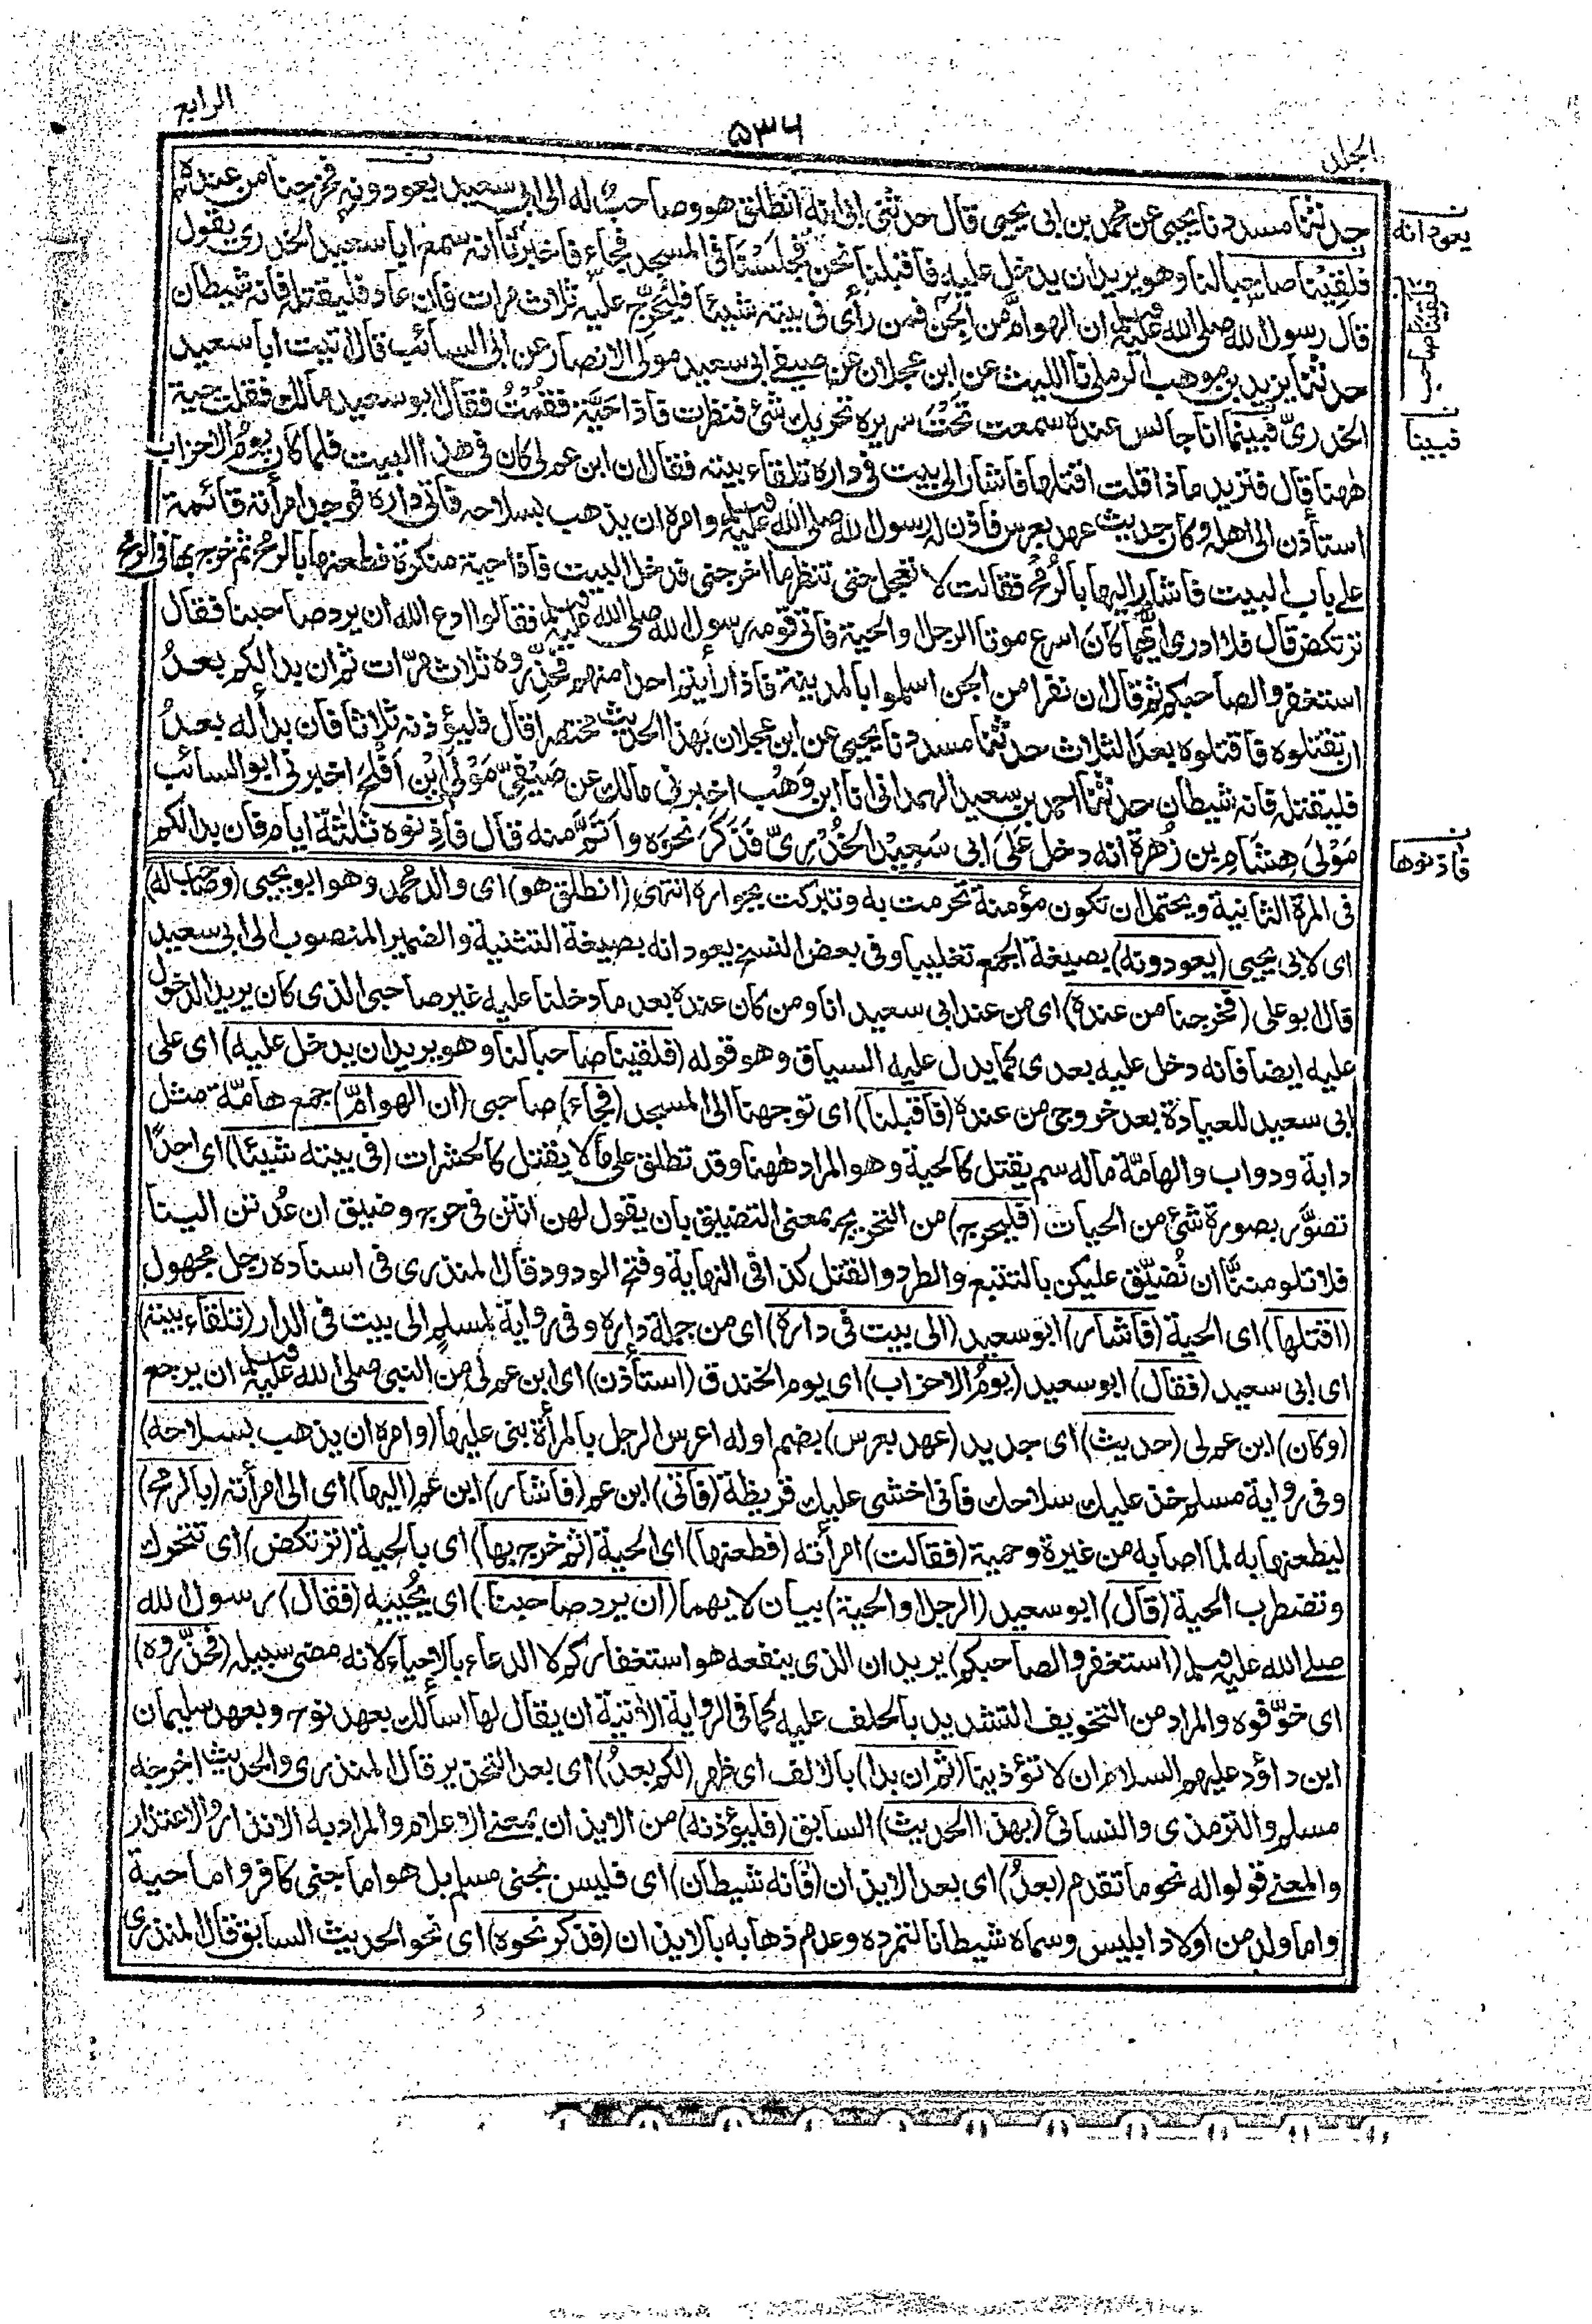 الجلد
٥٣٦
الرابع
حدثنا مسدد نا يحيى عن محمد بن ابى يحيى قال حدثنى ابى انه انطلق هو وصاحب له الى ابى سعيد يعودونه فخرجنا من عنده
فلقينا صاحبا لنا وهو يريد ان يدخل عليه فاقبلنا نحن فجلسنا فى المسجد فجاء فاخبرنا انه سمع ابا سعيد الخدرى يقول
قال رسول الله صلى الله عليه وسلم ان الهوام من الجن فمن رأى فى بيته شيئا فليحرج عليه ثلاث مرات فان عاد فليقتله فانه شيطان
حدثنا يزيد بن موهب الرملى نا الليث عن ابن عجلان عن صيفى ابى سعيد مولى الانصار عن ابى السائب قال اتيت ابا سعيد
الخدرىّ فبينما انا جالس عنده سمعت تحت سريره تحريك شئ فنظرت فاذا حيّة فقمت فقال ابو سعيد مالك فقلت حية
ههنا قال فتريد ماذا قلت اقتلها فاشار الى بيت فى داره تلقاء بيته فقال ان ابن عم لى كان فى هذا البيت فلما كان يوم الاحزاب
استأذن الى اهله وكان حديث عهد بعرس فاذن له رسول الله صلى الله عليه وسلم وامره ان يذهب بسلاحه فاتى داره فوجد امرأته قائمة
على باب البيت فاشار اليها بالرمح فقالت لا تعجل حتى تنظر ما اخرجنى فدخل البيت فاذا حية منكرة فطعنها بالرمح ثم خرج بها فى الرمح
ترتكض قال فلا ادرى ايهما كان اسرع موتا الرجل او الحية فاتى قومه رسول الله صلى الله عليه وسلم فقالوا ادع الله ان يرد صاحبنا فقال
استغفروا لصاحبكم ثم قال ان نفرا من الجن اسلموا بالمدينة فاذا رأيتم احدا منهم فحذّروه ثلاث مرّات ثم ان بدا لكم بعدُ
ان تقتلوه فاقتلوه بعد الثلاث حدثنا مسدد نا يحيى عن ابن عجلان بهذا الحديث مختصرا قال فليؤذنه ثلاثا فان بدأ له بعدُ
فليقتله فانه شيطان حدثنا احمد بن سعيد الهمدانى انا ابن وَهْب اخبرنى مالك عن صَيْفِىّ مَوْلَى ابْنِ اَفْلَحَ اخبرنى ابو السائب
مَوْلَى هِشَامِ بن زُهْرة انه دخل عَلَى ابى سَعِيْدٍ الْخُدْرِىّ فَذَكَرَ نحوَه واَتَمَّ منه قال فاذنوه ثلثة ايام فان بدا لكم
فى المرة الثانية ويحتمل ان تكون مؤمنة تحرمت به وتبركت بجواره انتهى (انطلق هو) اى والد محمد وهو ابو يحيى (وصاحب له)
اى لابى يحيى (يعودونه) بصيغة الجمع تغليبا وفى بعض النسخ يعودانه بصيغة التثنية والضمير المنصوب الى ابى سعيد
قال ابو على (فخرجنا من عنده) اى من عند ابى سعيد انا ومن كان عنده بعد ما دخلنا عليه غير صاحبى الذى كان يريد الدخول
عليه ايضا فانه دخل عليه بعدى كما يدل عليه السياق وهو قوله (فلقينا صاحبا لنا وهو يريد ان يدخل عليه) اى على
ابى سعيد للعيادة بعد خروجى من عنده (فاقبلنا) اى توجهنا الى المسجد (فجاء) صاحبى (ان الهوامّ) جمع هامّة مثل
دابة ودواب والهامّة ماله سم يقتل كالحية وهو المراد ههنا وقد تطلق على مالا يقتل كالحشرات (فى بيته شيئا) اى احدًا
تصوّر بصورة شئ من الحيات (فليحرج) من التحريج بمعنى التضييق بان يقول لهن انتن فى حرج وضيق ان عُدتن الينا
فلا تلومننّا ان نُضيّق عليكن بالتتبع والطرد والقتل كذا فى النهاية وفتح الودود قال المنذرى فى اسناده رجل مجهول
(اقتلها) اى الحية (فاشار) ابو سعيد (الى بيت فى داره) اى من جملة داره وفى رواية لمسلم الى بيت فى الدار (تلقاء بيته)
اى ابى سعيد (فقال) ابو سعيد (يوم الاحزاب) اى يوم الخندق (استأذن) اى ابن عم لى من النبى صلى الله عليه وسلم ان يرجع
(وكان) ابن عم لى (حديث) اى جديد (عهد بعرس) بضم اوله اعرس الرجل بالمرأة بنى عليها (وامره ان يذهب بسلاحه)
وفى رواية مسلم خذ عليك سلاحك فانى اخشى عليك قريظة (فاتى) ابن عم (فاشار) ابن عم (اليها) اى الى امرأته (بالرمح)
ليطعنها به لما اصابه من غيرة وحمية (فقالت) امرأته (فطعنها) اى الحية (ثم خرج بها) اى بالحية (ترتكض) اى تتحرك
وتضطرب الحية (قال) ابو سعيد (الرجل او الحية) بيان لايهما (ان يرد صاحبنا) اى يُحْييه (فقال) رسول الله
صلى الله عليه وسلم (استغفروا لصاحبكم) يريد ان الذى ينفعه هو استغفاركم لا الدعاء بالاحياء لانه مضى سبيله (فحذّروه)
اى خوّفوه والمراد من التخويف التشديد بالحلف عليه كما فى الرواية الآتية ان يقال لها اسألك بعهد نوح وبعهد سليمان
ابن داؤد عليهم السلام ان لا تؤذينا (ثم ان بدا) بالالف اى ظهر (لكم بعدُ) اى بعد التحذير قال المنذرى والحديث اخرجه
مسلم والترمذى والنسائى (بهذا الحديث) السابق (فليؤذنه) من الايذان بمعنى الاعلام والمراد به الانذار والاعتذار
والمعنى قولوا له نحو ما تقدم (بعدُ) اى بعد الايذان (فانه شيطان) اى فليس بجنى مسلم بل هو اما جنى كافر واما حية
واما ولد من اولاد ابليس وسماه شيطانا لتمرده وعدم ذهابه بالايذان (فذكر نحوه) اى نحو الحديث السابق قال المنذرى
ن
يعودانه
ن
فبينا
ن
فاذنوها